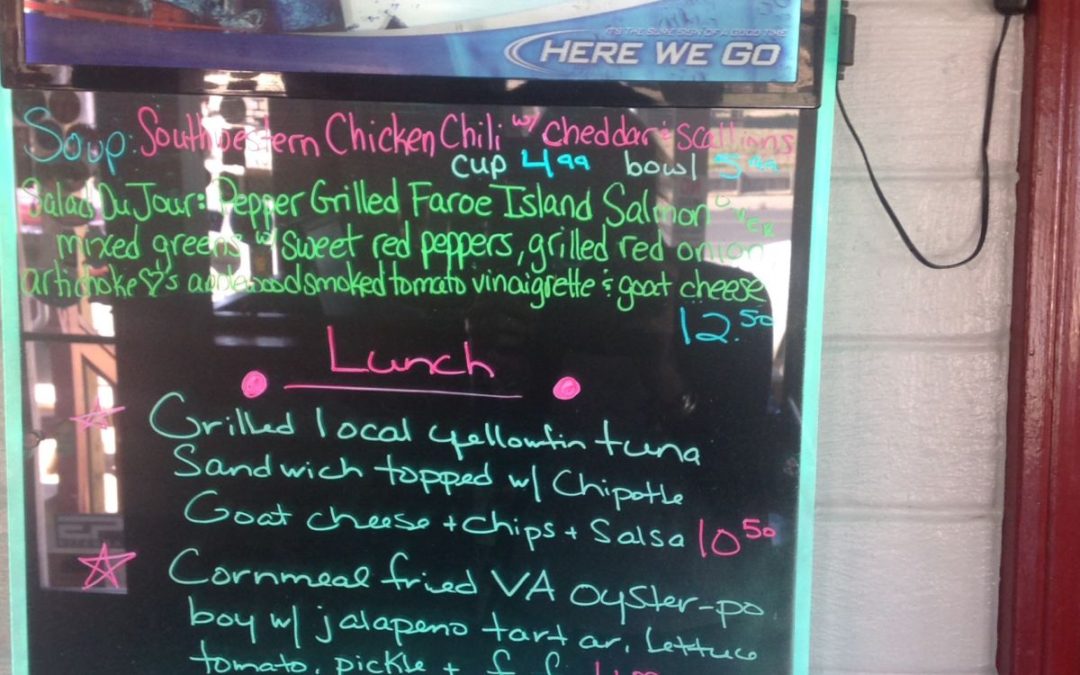 IT'S THE SURE SIGN OF A GOOD TIME
HERE WE GO
Soup: Southwestern Chicken Chili w/ cheddar & scallions
cup 4.99 bowl 5.99
Salad Du Jour: Pepper Grilled Faroe Island Salmon over
mixed greens w/ sweet red peppers, grilled red onion
artichoke ♡'s applewood smoked tomato vinaigrette & goat cheese
12.50
Lunch
Grilled local yellowfin tuna
Sandwich topped w/ Chipotle
Goat cheese + chips + Salsa 10.50
Cornmeal fried VA oyster-po
boy w/ jalapeno tartar, lettuce
tomato, pickle + f.f.